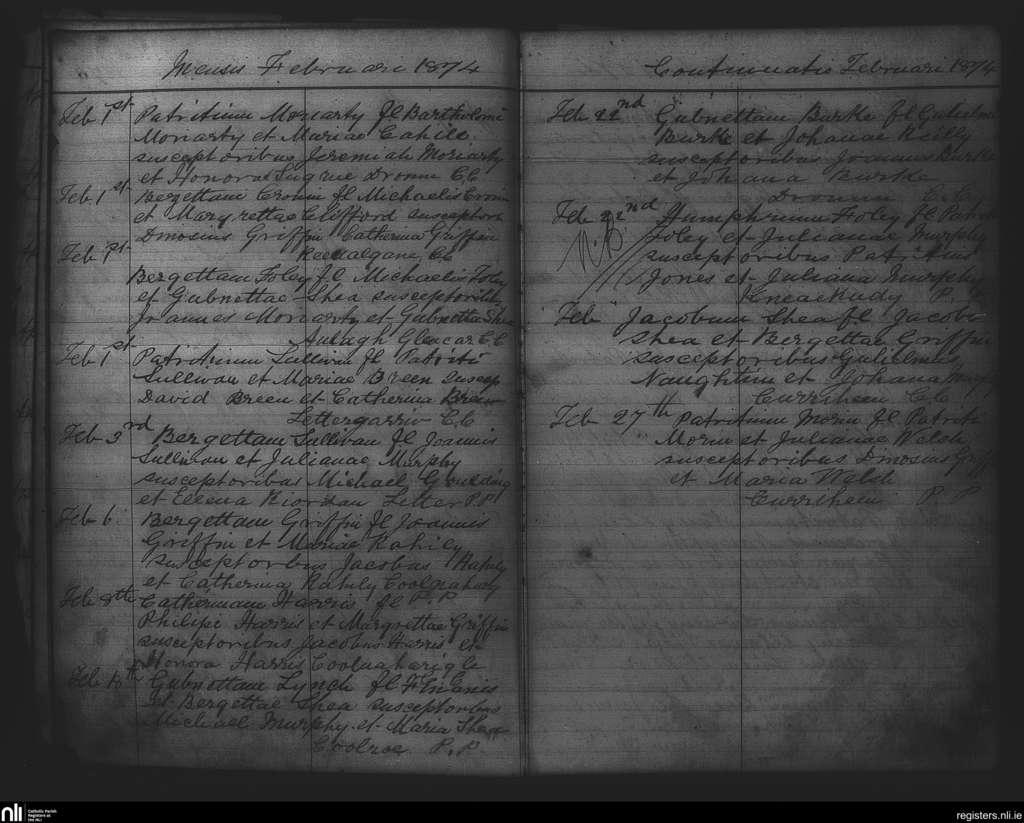 Mensis Februari 1874
Feb 1st Patritium Moriarty fl Bartholomi
Moriarty et Mariae Cahill
susceptoribus Jeremiah Moriarty
et Honora Sugrue Dromin C.C
Feb 1st Bergettam Cronin fl Michaelis Cronin
et Margrettae Clifford susceptori
Dinosius Griffin Catherina Griffin
Feb 1st C.C
Bergettam Foley fl Michaelis Foley
et Gubnettae Shea susceptoribus
Joannes Moriarty et Gubnetta Shea
Aulagh Glencar C.C
Feb 1st Patritium Sullivan fl Patriti
Sullivan et Mariae Breen suscep
David Breen et Catherina Breen
Lettergarriv C.C
Feb 3rd Bergettam Sullivan fl Joannis
Sullivan et Julianae Murphy
susceptoribus Michael Goulding
et Ellena Riordan Letter P.P
Feb 6 Bergettam Griffin fl Joannis
Griffin et Mariae Rahily
susceptoribus Jacobus Rahily
et Catherina Rahily
Feb 8th Catherinam Harris fl P.P
Philipi Harris et Margrettae Griffin
susceptoribus Jacobus Harris et
Honora Harris Coolnaharigle
Feb 10th Gubnettam Lynch fl
et Bergettae Shea susceptoribus
Michael Murphy et Maria Shea
Coolroe P.P
Continuatio Februari 1874
Feb 22nd Gubnettam Burke fl Gulielmi
Burke et Johanae Reilly
susceptoribus Joannes Burke
et Johana Burke
Dromin C.C
Feb 22nd Humphrium Foley fl Patriti
N.B. Foley et Julianae Murphy
susceptoribus Patritius
Jones et Juliana Murphy
P.
Feb " Jacobum Shea fl Jacobi
Shea et Bergettae Griffin
susceptoribus Gulielmus
Naughtin et Johana
Curriheen C.C
Feb 27th Patritium Morin fl Patriti
Morin et Julianae Welsh
susceptoribus Dinosius Griff
et Maria Welsh
Curriheen P.P
nli
Catholic Parish
Registers at
the NLI
registers.nli.ie